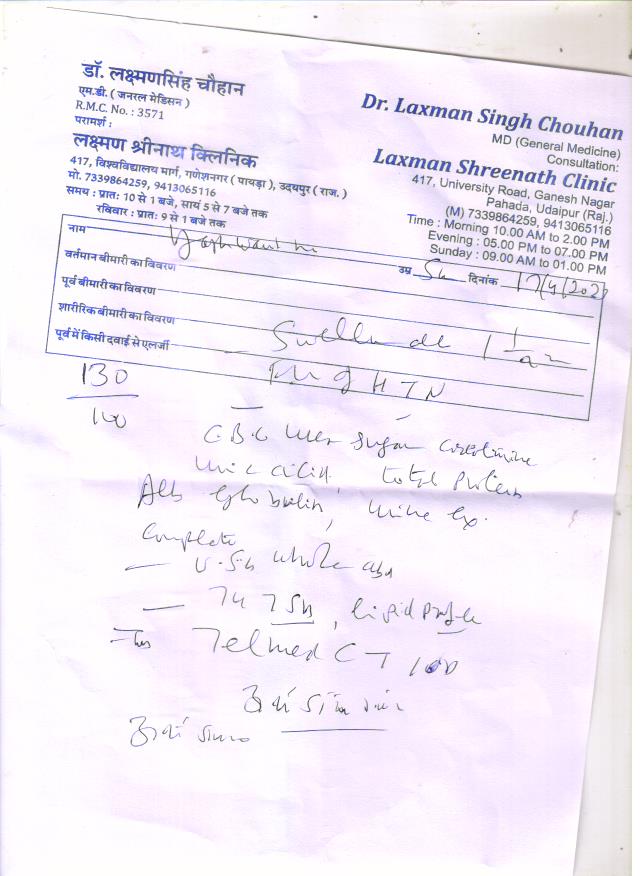 डॉ. लक्ष्मणसिंह चौहान
एम.डी. ( जनरल मेडिसन )
R.M.C. No. : 3571
परामर्श :
लक्ष्मण श्रीनाथ क्लिनिक
417, विश्वविद्यालय मार्ग, गणेशनगर ( पायड़ा ), उदयपुर ( राज. )
मो. 7339864259, 9413065116
समय : प्रातः 10 से 1 बजे, सायं 5 से 7 बजे तक
रविवार : प्रातः 9 से 1 बजे तक
Dr. Laxman Singh Chouhan
MD (General Medicine)
Consultation:
Laxman Shreenath Clinic
417, University Road, Ganesh Nagar
Pahada, Udaipur (Raj.)
(M) 7339864259, 9413065116
Time : Morning 10.00 AM to 2.00 PM
Evening : 05.00 PM to 07.00 PM
Sunday : 09.00 AM to 01.00 PM
नाम
उम्र दिनांक
वर्तमान बीमारी का विवरण
पूर्व बीमारी का विवरण
शारीरिक बीमारी का विवरण
पूर्व में किसी दवाई से एलर्जी
HTN
130
100
C.B.C Sugar
total protein
Globulin, urine
Complete
whole abd
lipid profile
Telmed CT 100